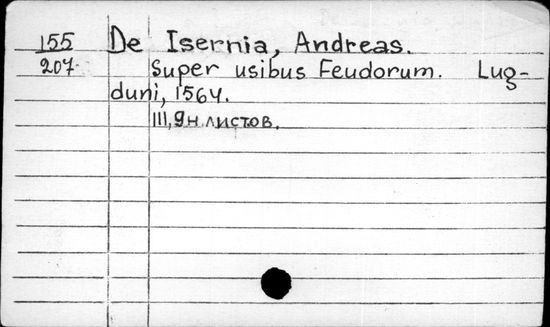 155 De Isernia, Andreas.
207. Super usibus Feudorum. Lug-
duni, 1564.
III, 9н. листов.